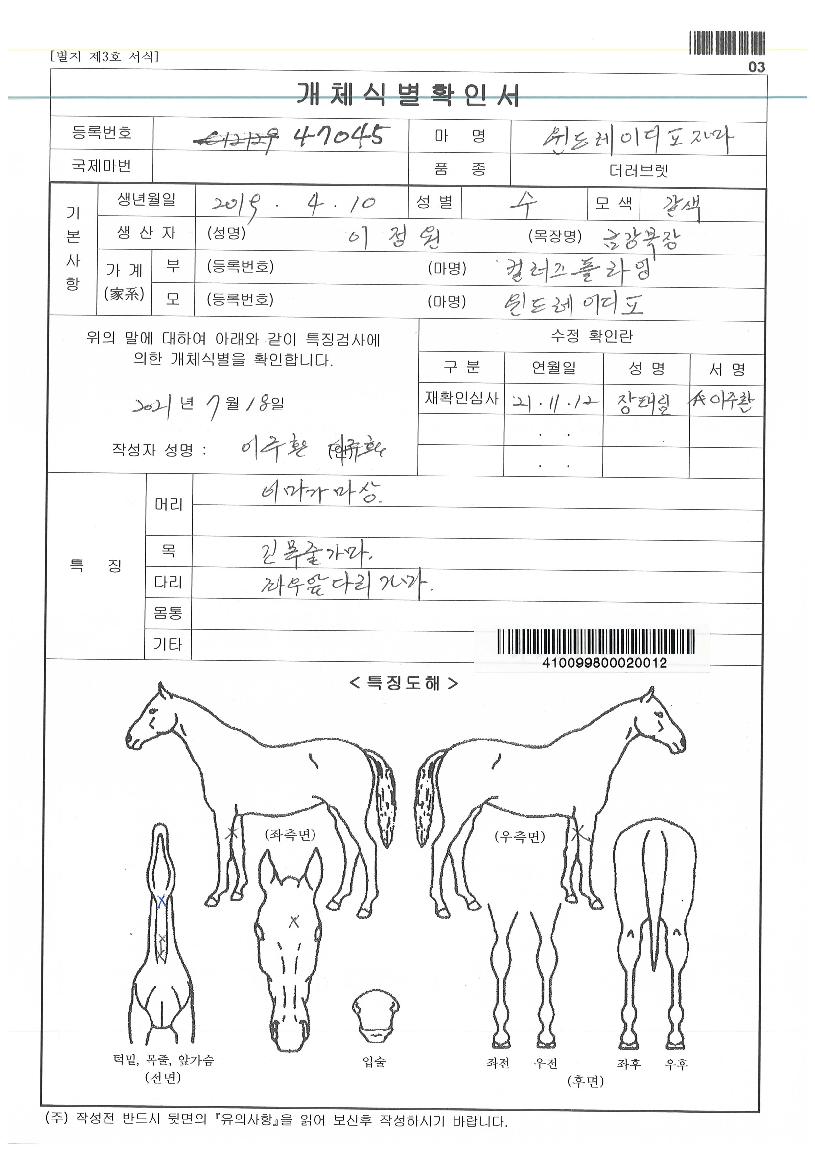 [별지 제3호 서식]
03
개체식별확인서
등록번호 47045 마 명 윈드레이디포지라
국제마번 품 종 더러브렛
기본사항
생년월일 2019. 4. 10 성별 수 모색 갈색
생산자 (성명) 이정원 (목장명) 금강목장
가계(家系) 부 (등록번호) (마명) 컬러즈플라잉
모 (등록번호) (마명) 윈드레이디포
위의 말에 대하여 아래와 같이 특징검사에
의한 개체식별을 확인합니다.
2021년 7월 18일
작성자 성명 : 이주환
수정 확인란
구분 연월일 성명 서명
재확인심사 21.11.12 이주환
특 징
머리 이마가마상.
목 긴목줄가마.
다리 좌우앞다리가마.
몸통
기타
410099800020012
< 특징도해 >
(좌측면) (우측면)
턱밑, 목줄, 앞가슴
(전면)
입술
좌전 우전 좌후 우후
(후면)
(주) 작성전 반드시 뒷면의 『유의사항』을 읽어 보신후 작성하시기 바랍니다.